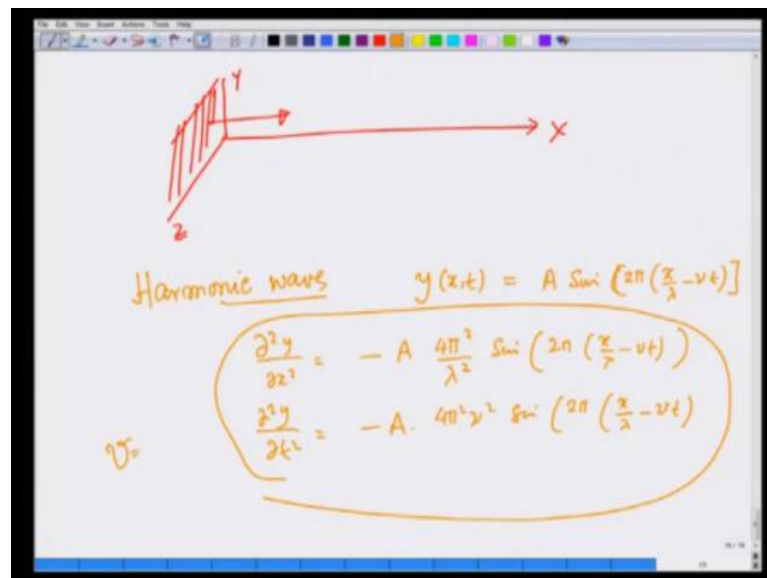 File Edit View Insert Actions Tools Help
Y
X
Z
Harmonic waves y(x,t) = A Sin [2π(x/λ - νt)]
∂²y/∂x² = - A 4π²/λ² Sin (2π (x/λ - νt))
∂²y/∂t² = - A. 4π²ν² Sin (2π (x/λ - νt)
v=